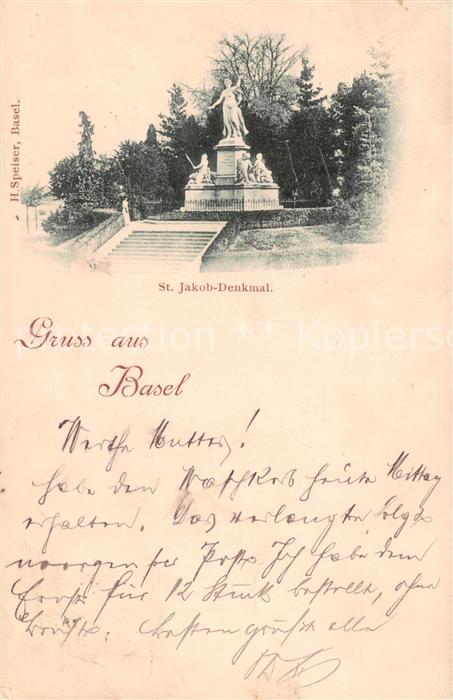 H. Speiser, Basel.
St. Jakob-Denkmal.
protection Kopierschutz
Gruss aus
Basel
Werthe Mutter!
habe den Waschkorb heute Mittag
erhalten. Das verlangte folgt
morgen per Post. Ich habe dem
Ernst für 12 Stück bestellt, ohne
Kosten grüsst alle